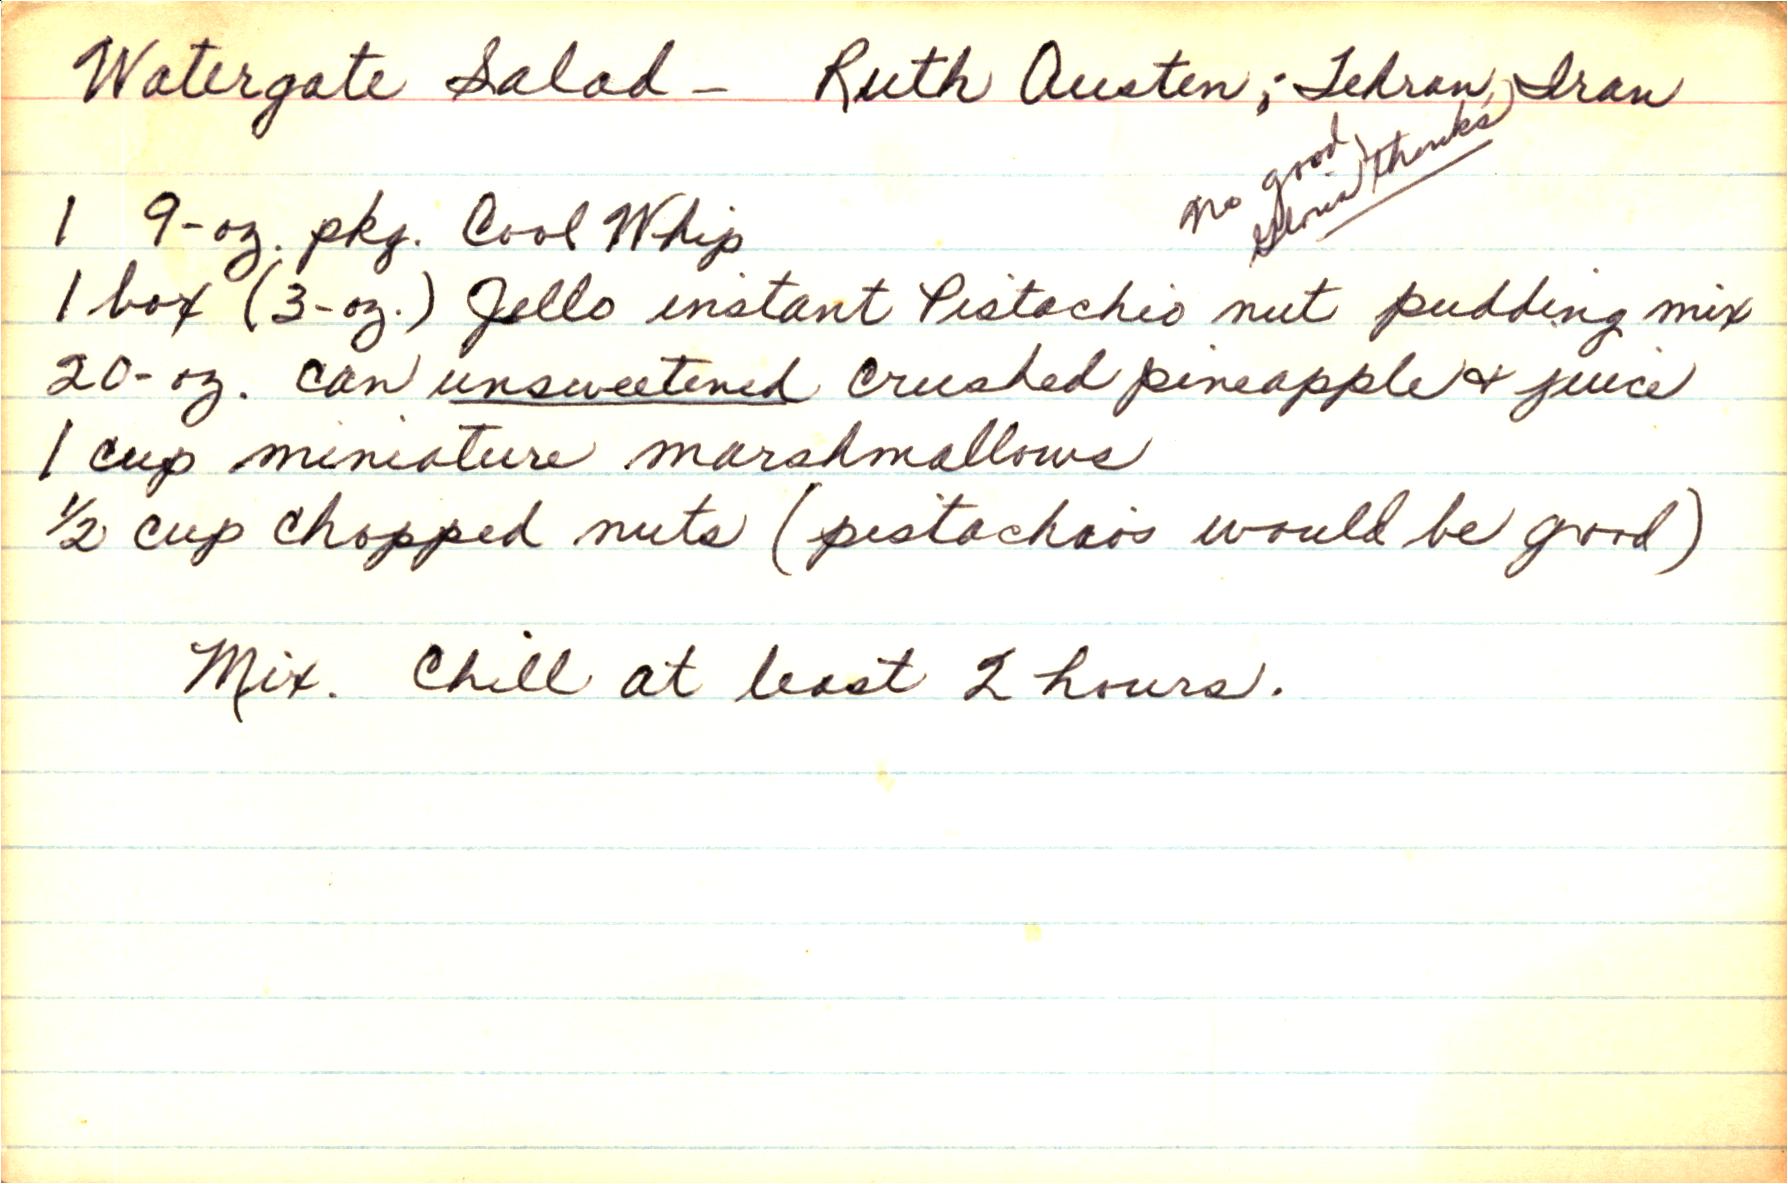 Watergate Salad - Ruth Austen; Tehran, Iran
No good
thinks
1 9-oz. pkg. Cool Whip
1 box (3-oz.) Jello instant Pistachio nut pudding mix
20-oz. can unsweetened crushed pineapple & juice
1 cup miniature marshmallows
1/2 cup chopped nuts (pistachois would be good)
Mix. Chill at least 2 hours.